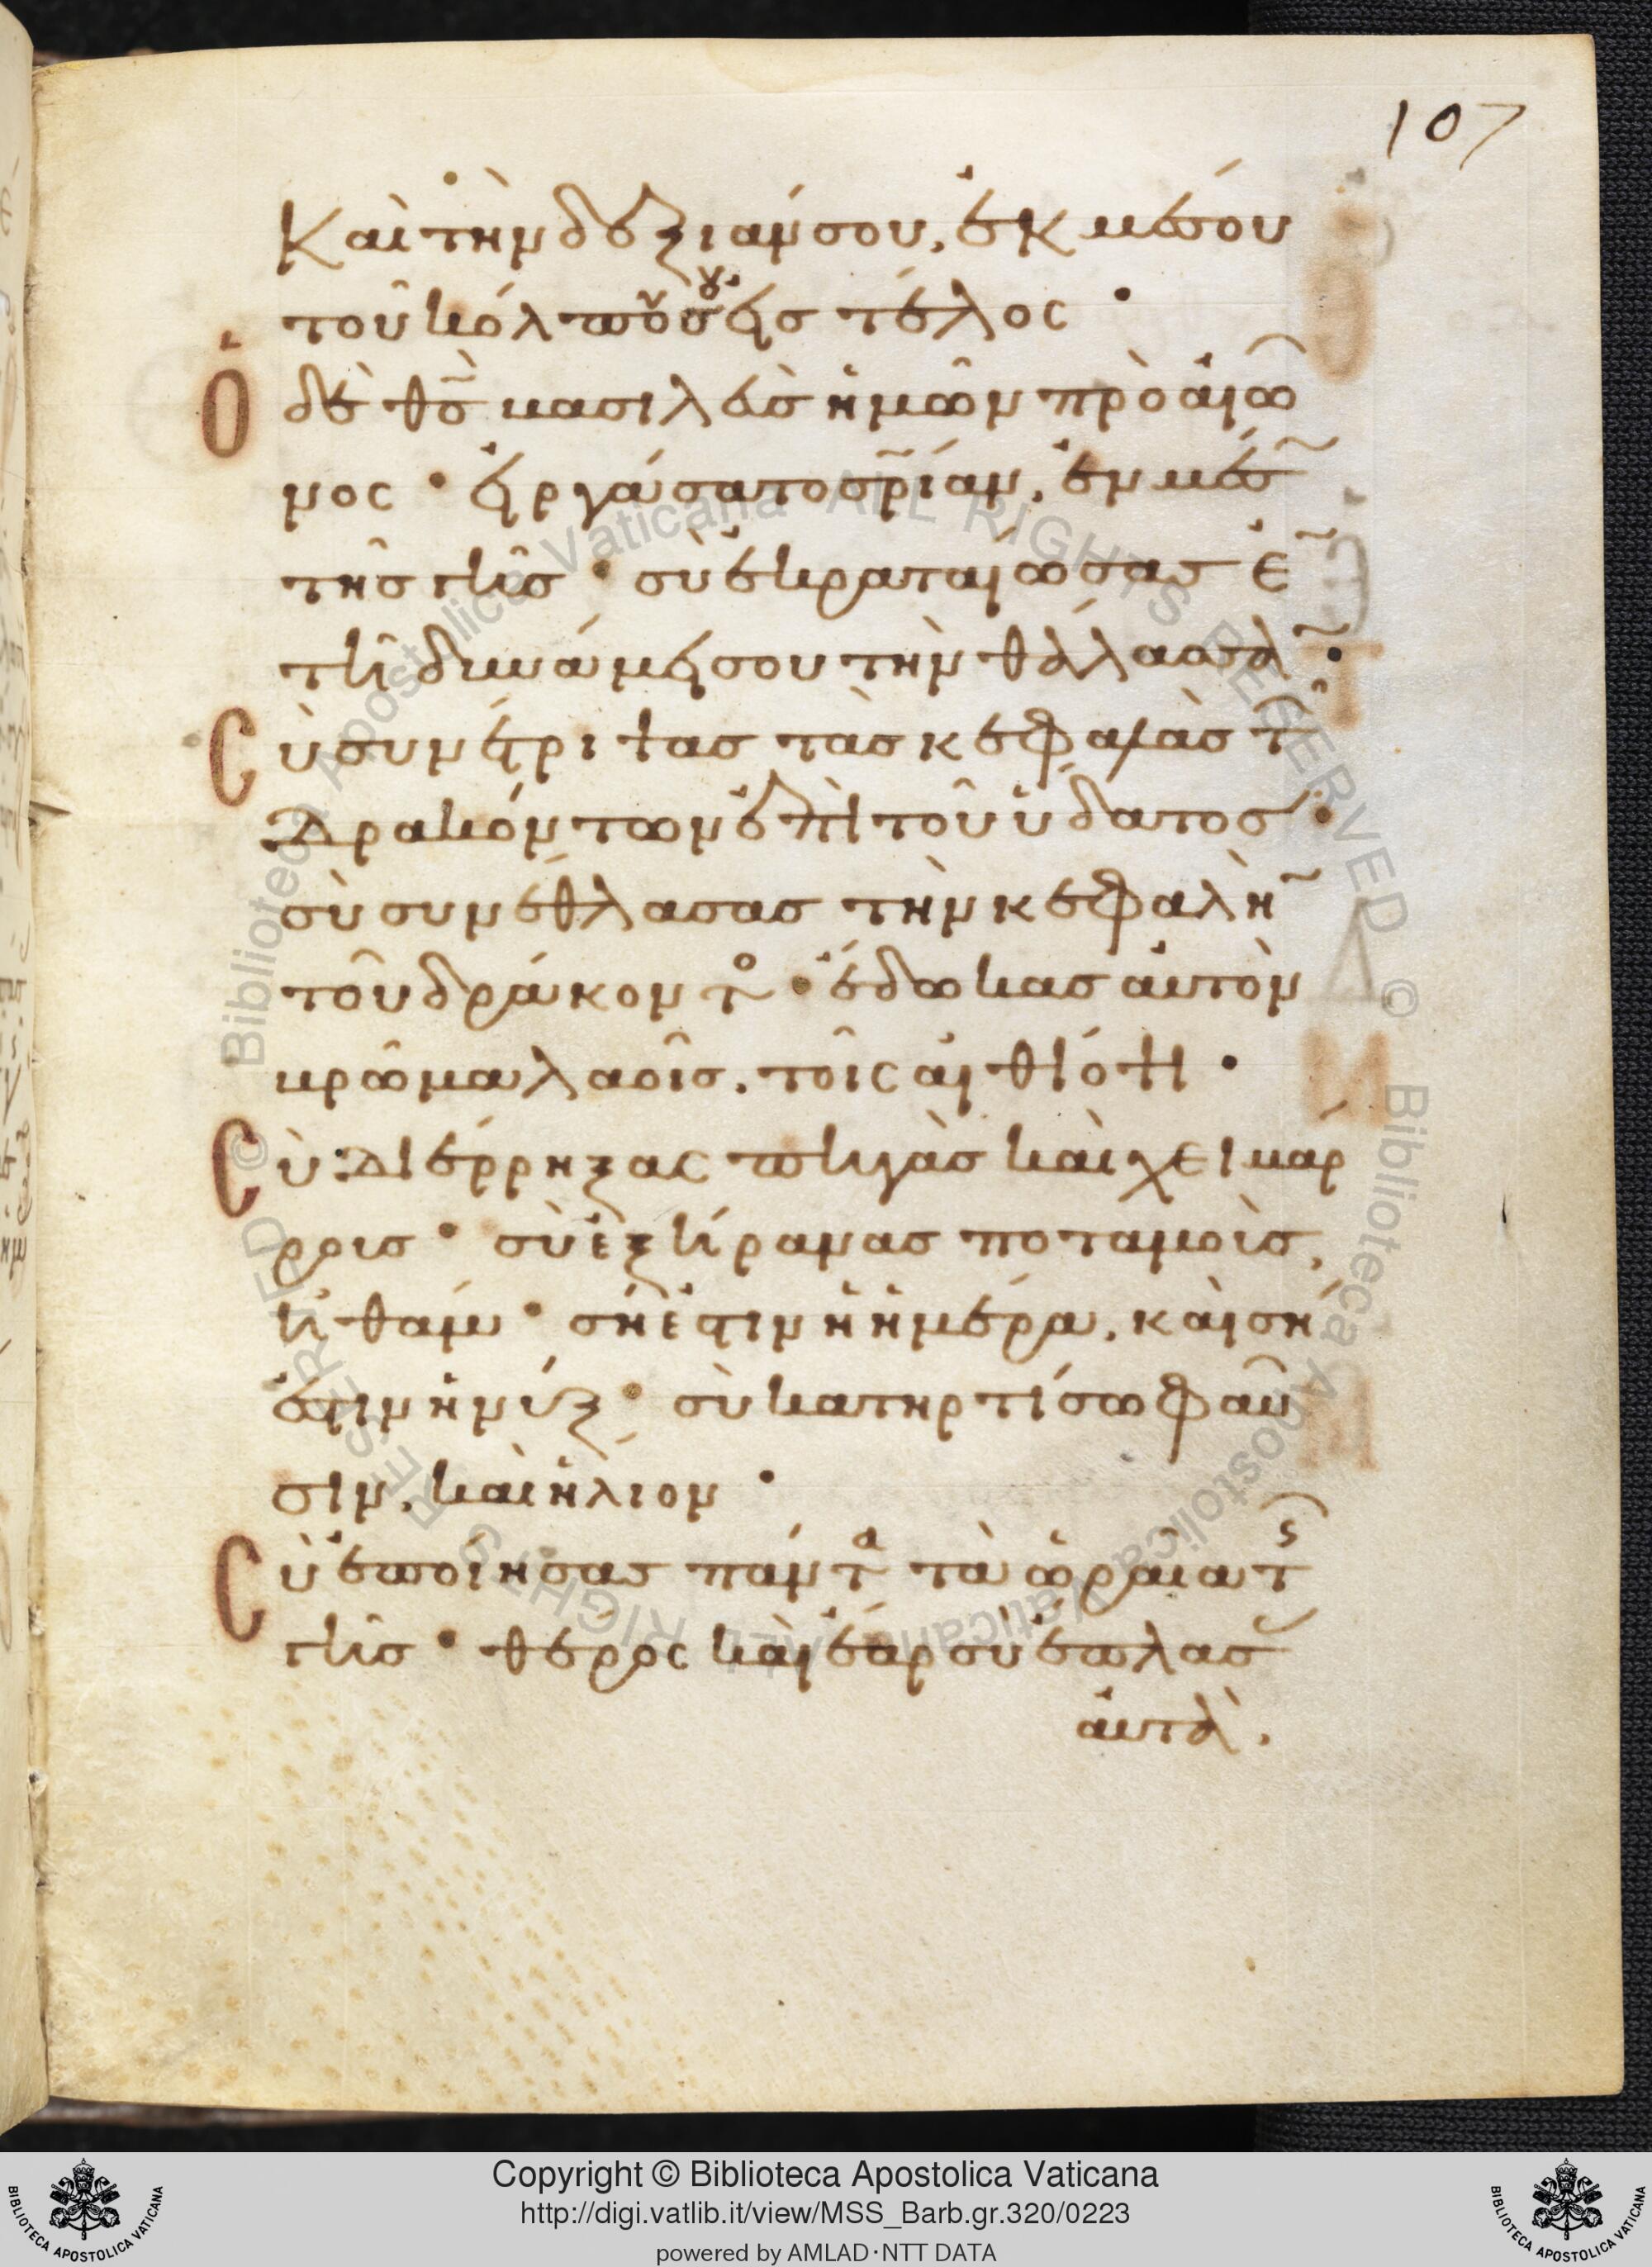 107
Καὶ τὴν δεξιάν σου, ἐκ μέσου
τοῦ κόλπου σου εἰς τέλος ·
Ὁ δὲ θς̄ βασιλεὺς ἡμῶν πρὸ αἰῶ
νος · εἰργάσατο σρ̄ίαν, ἐν μέσω
τῆς γῆς · σὺ ἐκραταίωσας ἐν
τῆ δυνάμει σου τὴν θάλασσαν ·
Cὺ συνέτριψας τὰς κεφαλὰς τῶν
δρακόντων ἐπὶ τοῦ ὕδατος ·
σὺ συνέθλασας τὴν κεφαλὴν
τοῦ δράκοντος · ἔδωκας αὐτὸν
βρῶμα λαοῖς, τοῖς αἰθίοψι ·
Cὺ διέρρηξας πηγὰς καὶ χειμάρ
ρους · σὺ ἐξήρανας ποταμοὺς,
ἠθάμ · σή ἐστιν ἡ ἡμέρα, καὶ σή
ἐστιν ἡ νύξ · σὺ κατηρτίσω φαῦ
σιν, καὶ ἥλιον ·
Cὺ ἐποίησας πάντα τὰ ὡραῖα τῆς
γῆς · θέρος καὶ ἔαρ σὺ ἔπλασας
αὐτά.
Copyright © Biblioteca Apostolica Vaticana
http://digi.vatlib.it/view/MSS_Barb.gr.320/0223
powered by AMLAD·NTT DATA
BIBLIOTECA APOSTOLICA VATICANA
BIBLIOTECA APOSTOLICA VATICANA